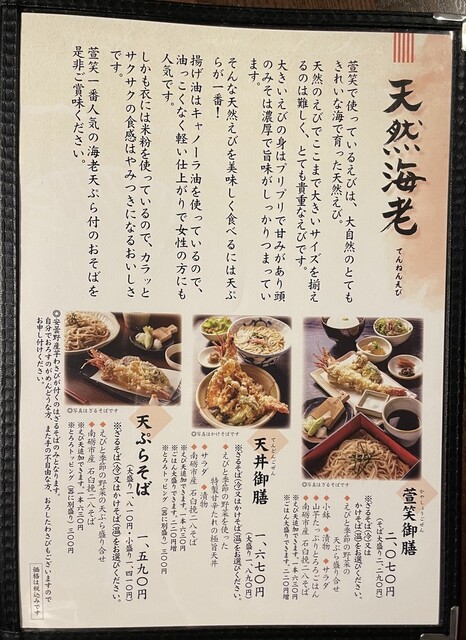 天然海老
てんねんえび
萱笑で使っているえびは、大自然のとても
きれいな海で育った天然えび。
天然のえびでここまで大きいサイズを揃え
るのは難しく、とても貴重なえびです。
大きいえびの身はプリプリで甘みがあり頭
のみそは濃厚で旨味がしっかりつまってい
ます。
そんな天然えびを美味しく食べるには天ぷ
らが一番！
揚げ油はキャノーラ油を使っているので、
油っこくなく軽い仕上がりで女性の方にも
人気です。
しかも衣には米粉を使っているので、カラッと
サクサクの食感はやみつきになるおいしさ
です。
萱笑一番人気の海老天ぷら付のおそばを
是非ご賞味ください。
◎写真はざるそばです
萱笑御膳
二、〇七〇円
（そば大盛り 二、二九〇円）
※ざるそば（冷）又は
かけそば（温）をお選びください。
◆えびと季節の野菜の
天ぷら盛り合せ
◆小鉢 ◆サラダ ◆漬物
◆山芋たっぷりとろろごはん
◆南砺市産 石臼挽二八そば
※えび天追加できます。一本六三〇円
※ごはん大盛りできます。二二〇円増
◎写真はかけそばです
天丼御膳
てんどんごぜん
一、六七〇円
（大盛り 一、八九〇円）
※ざるそば（冷）又はかけそば（温）をお選びください。
◆えびと季節の野菜を使った
特製甘辛たれの極旨天丼
◆サラダ ◆漬物
◆南砺市産 石臼挽二八そば
※えび天追加できます。一本六三〇円
※ごはん大盛りできます。二二〇円増
※とろろトッピング（別に別盛り）三〇〇円
◎写真はざるそばです
天ぷらそば
一、五九〇円
（大盛り 一、八一〇円・小盛り 一、四一〇円）
※ざるそば（冷）又はかけそば（温）をお選びください。
◆えびと季節の野菜の天ぷら盛り合せ
◆南砺市産 石臼挽二八そば
※えび天追加できます。一本六三〇円
◎安曇野産芋わさびが付くのはざるそばのみとなります。
自分でおろすのがめんどうな方、また手の不自由な方、おろしたわさびもございますので
お申し付けください。
価格は税込みです